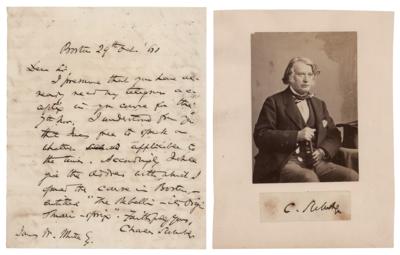 Boston 29th Oct. '61
Dear Sir,
I presume that you have al-
ready rec'd my telegram accepting
in your course for the
I understand from you
that I am free to speak on
whatever applicable to
the times. Accordingly I shall
give the address with which I
opened the course in Boston,—
entitled "The Rebellion—its Origin
& main-spring." Faithfully yours,
Charles Sumner
James W. White Esq.
C.